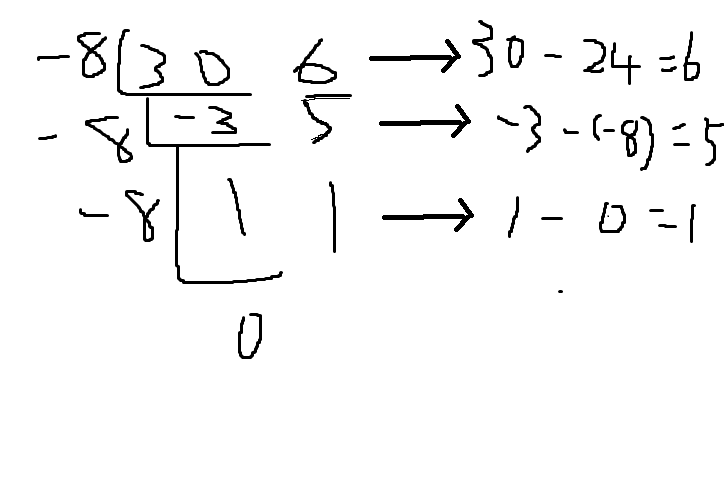 -8 30 6 → 30 - 24 = 6
-8 -3 5 → -3 - (-8) = 5
-8 1 1 → 1 - 0 = 1
0